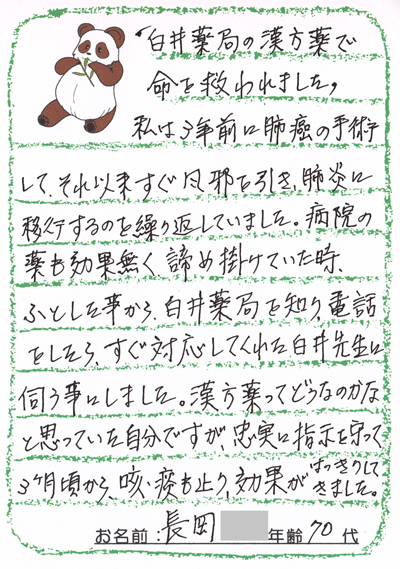 "臼井薬局の漢方薬で
命を救われました"
私は3年前に肺癌の手術
して、それ以来すぐ風邪を引き、肺炎に
移行するのを繰り返していました。病院の
薬も効果無く、諦め掛けていた時、
ふとした事から、臼井薬局を知り、電話
をしたら、すぐ対応してくれた臼井先生に
伺う事にしました。漢方薬ってどうなのかな
と思っていた自分ですが、忠実に指示を守って
3ヶ月頃から、咳・痰も止り、効果がはっきりして
きました。
お名前：長岡 年齢 70代